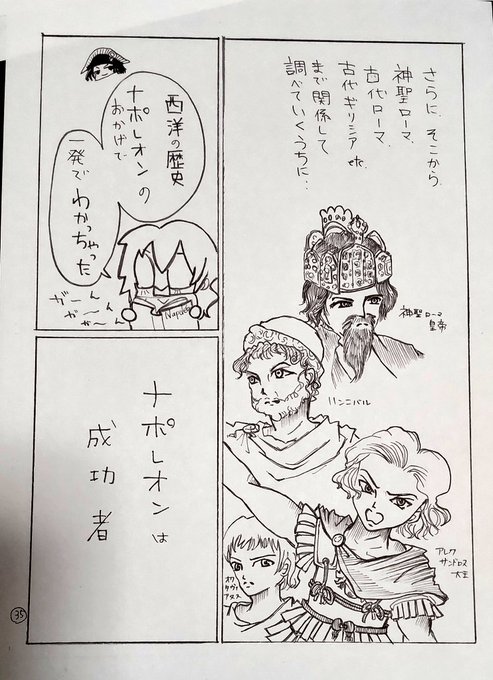 さらに、そこから
神聖ローマ、
古代ローマ、
古代ギリシア etc.
まで関係して
調べていくうちに…
神聖ローマ
皇帝
ハンニバル
アレク
サンドロス
大王
オクタヴィ
アヌス
西洋の歴史
ナポレオンの
おかげで
一発で
わかっちゃった
ガーン
ガーン
ガーン
ナポレオンは
成功者
35